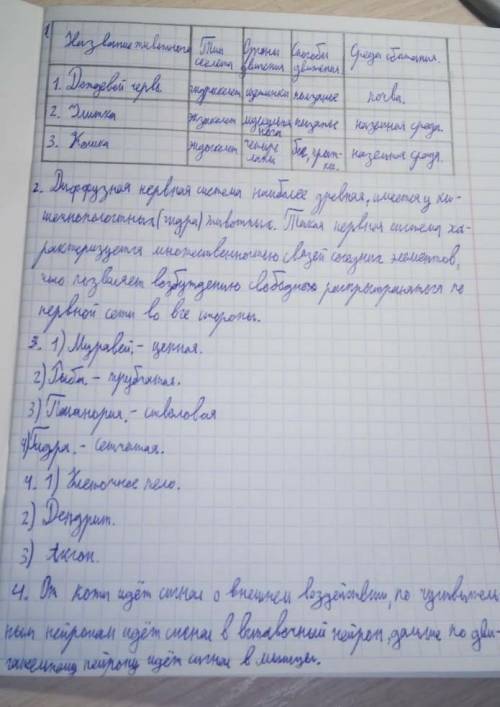 1
Название животного Тип скелета Органы движения Способы движения Среда обитания.
1. Дождевой червь. гидроскелет щетинки ползание почва.
2. Улитка экзоскелет мускульная нога ползанье наземная среда.
3. Кошка эндоскелет четыре лапы бег, прыжки. наземная среда.
2. Диффузная нервная система наиболее древняя, имеется у ки-
шечнополостных (гидра) животных. Такая нервная система ха-
рактеризуется множественностью связей соседних элементов,
что позволяет возбуждению свободно распространяться по
нервной сети во все стороны.
3. 1) Муравей, - цепная.
2) Рыба - трубчатая.
3) Планария, - стволовая
4) Гидра, - сетчатая.
4. 1) Клеточное тело.
2) Дендрит.
3) Аксон.
4. От кожи идёт сигнал о внешнем воздействии, по чувствитель
ным нейронам идёт сигнал в вставочный нейрон, дальше по дви-
гательному нейрону идёт сигнал в мышцы.